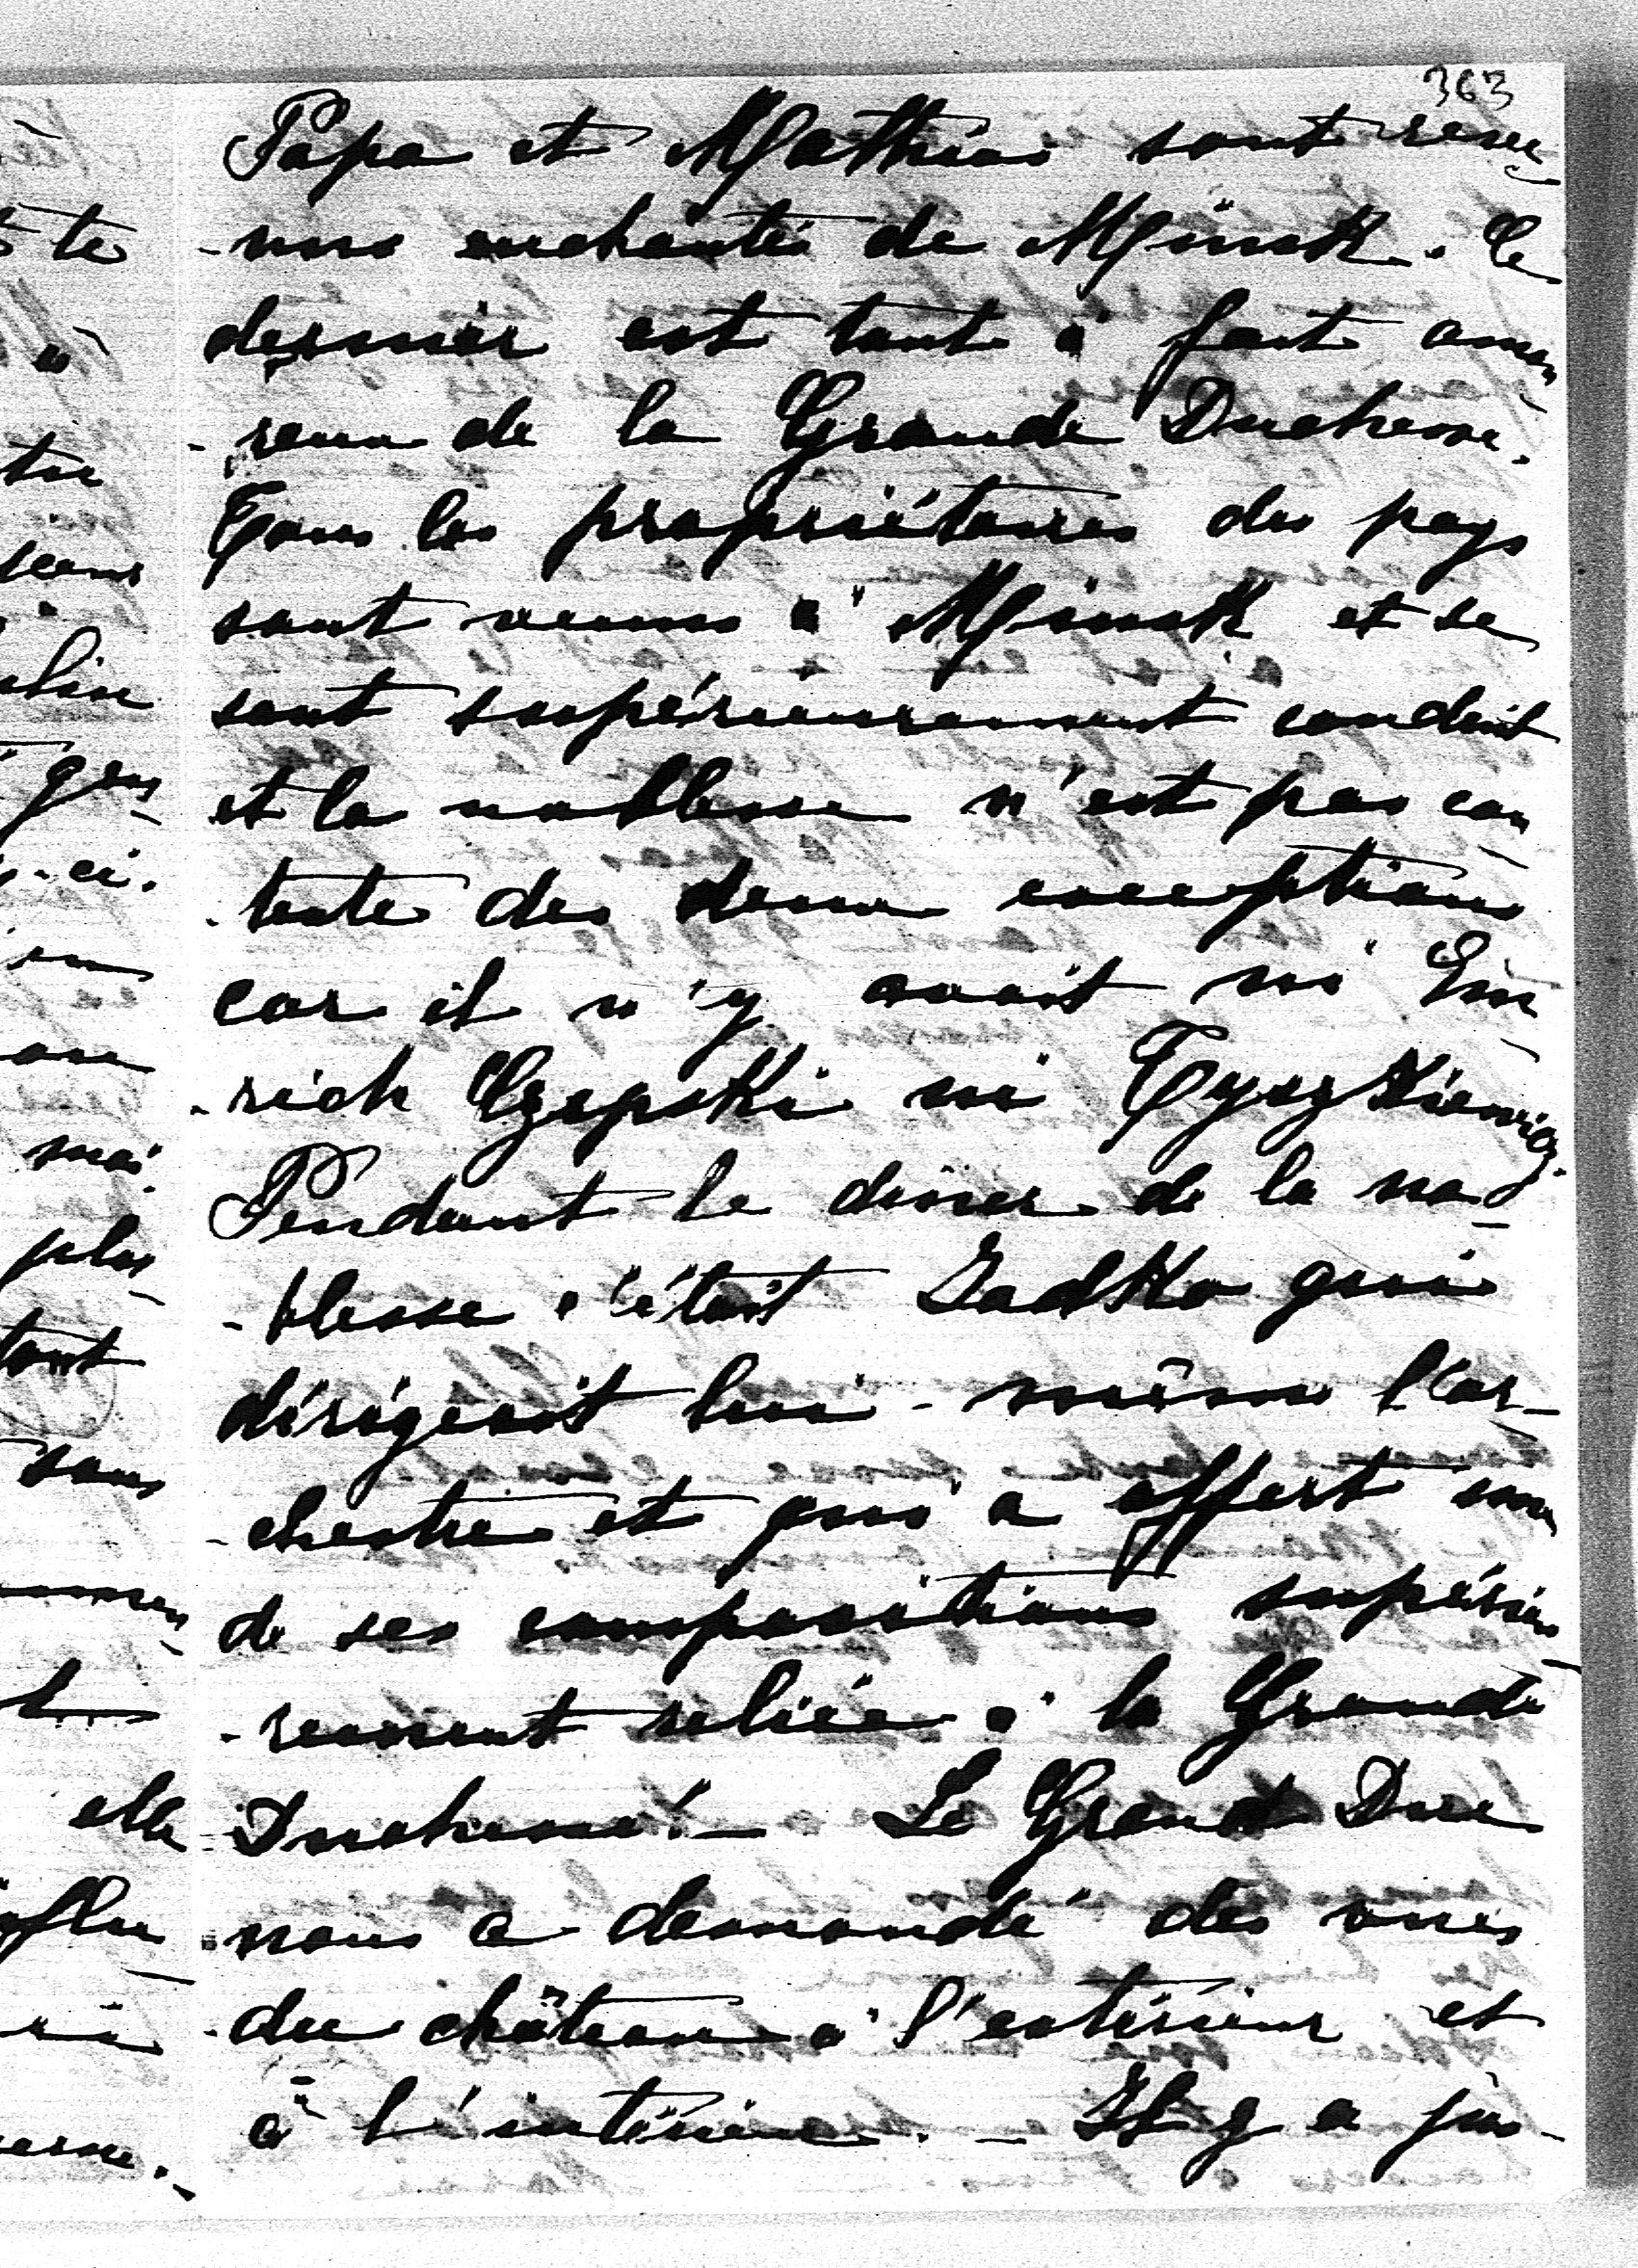 363
Papa et Mathias sont reve-
-nus enchantés de Minsk. Ce
dernier est tout à fait amou-
-reux de la Grande Duchesse.
Tous les propriétaires du pays
sont venus à Minsk et se
sont supérieurement conduit
et la noblesse n'est pas con-
-tente des deux exceptions
car il n'y avait ni Em-
-rich Czapski ni Tyszkiewicz.
Pendant le dîner de la no-
-blesse c'était Jadko qui
dirigeait lui-même l'or-
-chestre et qui a offert une
de ses compositions supérieu-
-rement reliée à la Grande
Duchesse! — Le Grand Duc
nous a demandé des vues
du château à l'extérieur et
à l'intérieur. — Il y a jus-